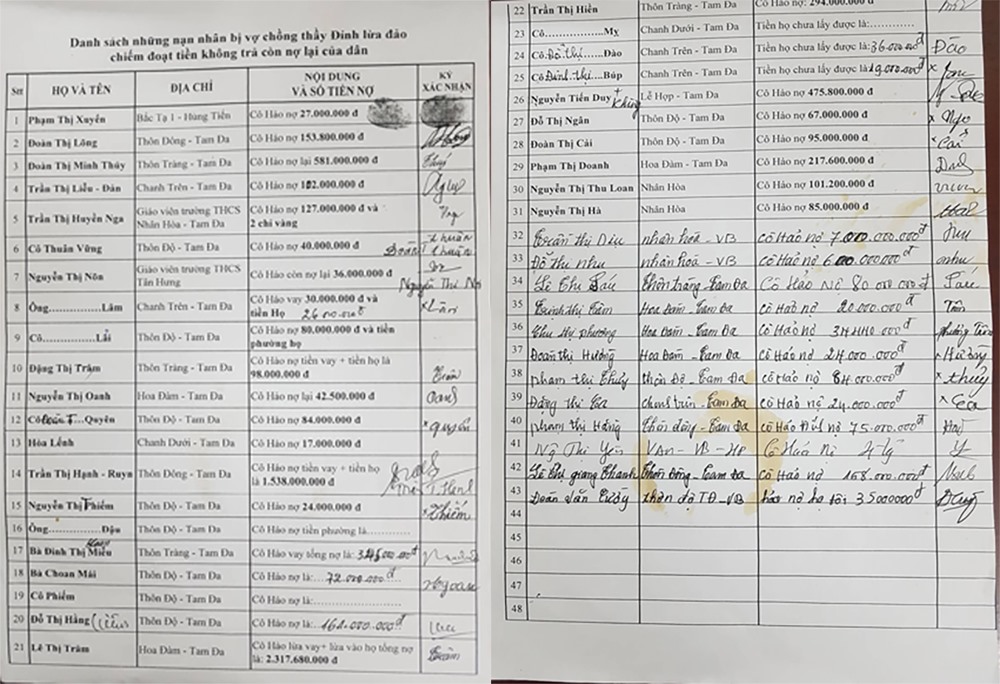 Danh sách những nạn nhân bị vợ chồng thầy Đính lừa đảo
chiếm đoạt tiền không trả còn nợ lại của dân
Stt HỌ VÀ TÊN ĐỊA CHỈ NỘI DUNG VÀ SỐ TIỀN NỢ KÝ XÁC NHẬN
1 Phạm Thị Xuyến Bắc Tạ 1 - Hùng Tiến Cô Hảo nợ 27.000.000 đ
2 Đoàn Thị Lông Thôn Đông - Tam Đa Cô Hảo nợ 153.800.000 đ
3 Đoàn Thị Minh Thúy Thôn Tràng - Tam Đa Cô Hảo nợ lại 581.000.000 đ Thuý
4 Trần Thị Liễu - Đán Chanh Trên - Tam Đa Cô Hảo nợ 102.000.000 đ
5 Trần Thị Huyền Nga Giáo viên trường THCS Cô Hảo nợ 127.000.000 đ và Nga
Nhân Hòa - Tam Đa 2 chỉ vàng
6 Cô Thuân Vững Thôn Độ - Tam Đa Cô Hảo nợ 40.000.000 đ thuân
7 Nguyễn Thị Nôn Giáo viên trường THCS Cô Hảo còn nợ lại 36.000.000 đ
Tân Hưng Nguyễn Thị
8 Ông................Lâm Chanh Trên - Tam Đa Cô Hảo vay 30.000.000 đ và
tiền Họ 26.000.000đ
9 Cô................Lải Thôn Độ - Tam Đa Cô Hảo nợ 80.000.000 đ và tiền
phường họ
10 Đặng Thị Trâm Thôn Tràng - Tam Đa Cô Hảo nợ tiền vay + tiền họ là
98.000.000 đ
11 Nguyễn Thị Oanh Hoa Đàm - Tam Đa Cô Hảo nợ lại 42.500.000 đ Oanh
12 Cô Quyên Thôn Độ - Tam Đa Cô Hảo nợ 84.000.000 đ × quyên
13 Hóa Lềnh Chanh Dưới - Tam Đa Cô Hảo nợ 17.000.000 đ
14 Trần Thị Hạnh - Ruyn Thôn Đông - Tam Đa Cô Hảo nợ tiền vay + tiền họ
là 1.538.000.000 đ
15 Nguyễn Thị Thiềm Thôn Độ - Tam Đa Cô Hảo nợ 24.000.000 đ × Thiềm
16 Ông................Đậu Thôn Độ - Tam Đa Cô Hảo nợ tiền phường là......
17 Bà Đinh Thị Miều Thôn Tràng - Tam Đa Cô Hảo vay tổng nợ là:
18 Bà Choan Mái Thôn Độ - Tam Đa Cô Hảo nợ là:...72.000.000đ
19 Cô Phiếm Thôn Độ - Tam Đa Cô Hảo nợ là:......................
20 Đỗ Thị Hằng Thôn Độ - Tam Đa Cô Hảo nợ là:
21 Lê Thị Trâm Hoa Đàm - Tam Đa Cô Hảo lừa vay+ lừa vào họ tổng nợ
là: 2.317.680.000 đ
22 Trần Thị Hiền Thôn Tràng - Tam Đa Cô Hảo nợ: 294.000.000 đ
23 Cô................Mỵ Chanh Dưới - Tam Đa Tiền họ chưa lấy được là:..............
24 Cô Đỗ Thị...Đào Chanh Trên - Tam Đa Tiền họ chưa lấy được là: 36.000.000đ Đào
25 Cô Đinh Thị...Búp Chanh Trên - Tam Đa Tiền họ chưa lấy được là: 19.000.000đ
26 Nguyễn Tiến Duy + Lễ Hợp - Tam Đa Cô Hảo nợ 475.800.000 đ
27 Đỗ Thị Ngân Thôn Độ - Tam Đa Cô Hảo nợ 67.000.000 đ
28 Đoàn Thị Cải Thôn Độ - Tam Đa Cô Hảo nợ 95.000.000 đ × Cải
29 Phạm Thị Doanh Hoa Đàm - Tam Đa Cô Hảo nợ 217.600.000 đ
30 Nguyễn Thị Thu Loan Nhân Hòa Cô Hảo nợ 101.200.000 đ
31 Nguyễn Thị Hà Nhân Hòa Cô Hảo nợ 85.000.000 đ
32 thị Dịu nhân hoà - VB cô Hảo nợ
33 Đỗ thị như nhân hoà - VB cô Hảo nợ như
34 Lê Thị Sáu Thôn tràng - Tam Đa Cô Hảo Nợ 80 000 000đ Sáu
35 Trịnh thị Tâm Hoa Đàm - Tam Đa cô Hảo nợ 20.000.000đ Tâm
36 Chu thị phương Hoa Đàm - Tam Đa cô Hảo nợ
37 Đoàn thị Hường Hoa Đàm - Tam Đa cô Hảo nợ 24.000.000đ × Hường
38 phạm thị Thuỷ thôn Độ - Tam Đa cô Hảo nợ 84.000.000đ × thuỷ
39 Đặng thị - Tam Đa cô Hảo nợ 24.000.000đ
40 phạm thị Hằng Thôn đông - Tam Đa cô Hảo nợ 75.000.000đ
41 Ngô Thị Yến - VB - HP Cô Hảo nợ 4 tỷ Y
42 Lê Thị giang Thanh Thôn Đông - Tam Đa cô Hảo nợ 168.000.000đ
43 Đoàn Văn thôn độ TĐ - VB hảo nợ họ tôi 35000000đ
44
45
46
47
48